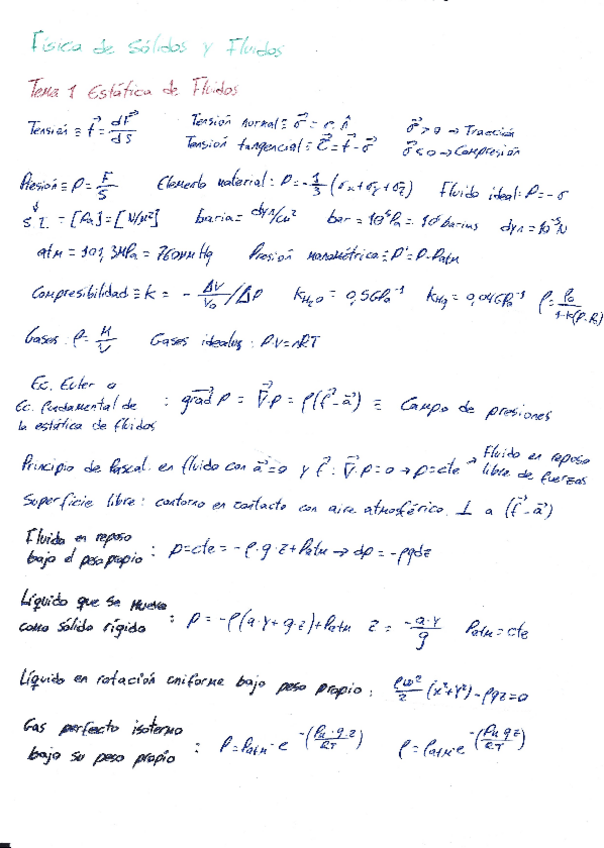 Física de Sólidos y Fluidos
Tema 1 Estática de Fluidos
Tensión ≡ f⃗ = dF⃗/dS   Tensión normal ≡ σ⃗ = σ·n̂   σ⃗ > 0 → Tracción
Tensión tangencial ≡ τ⃗ = f⃗ - σ⃗   σ⃗ < 0 → Compresión
Presión ≡ P = F/S   Elemento material: P = -1/3 (σx + σy + σz)   Fluido ideal: P = -σ
S.I. = [Pa] = [N/m²]   baria = dyn/cm²   bar = 10⁵Pa = 10⁶ barias   dyn = 10⁻⁵N
atm = 101,3MPa = 760mmHg   Presión manométrica ≡ P' = P - Patm
Compresibilidad ≡ K = - ΔV/V₀ /ΔP   K H₂O = 0,5GPa⁻¹   K Hg = 0,04GPa⁻¹   ρ = ρ₀/1-K(P-P₀)
Gases: ρ = M/V   Gases ideales: P·V = nRT
Ec. Euler o
Ec. fundamental de : grad⃗ P = ∇⃗·P = ρ(f⃗ - a⃗) ≡ Campo de presiones
la estática de fluidos
Principio de Pascal: en fluido con a⃗ = 0 y f⃗ : ∇⃗·P = 0 → p = cte → Fluido en reposo
libre de fuerzas
Superficie libre: contorno en contacto con aire atmosférico. ⊥ a (f⃗ - a⃗)
Fluido en reposo
bajo el peso propio : p = cte = -ρ·g·z + Patm → dp = -ρgdz
Líquido que se mueve
como sólido rígido : P = -ρ(a·y + g·z) + Patm   z = -a·y/g   Patm = cte
Líquido en rotación uniforme bajo peso propio: ρω²/2 (x² + y²) - ρgz = 0
Gas perfecto isotermo
bajo su peso propio : P = Patm·e^-(PM·g·z/RT)   ρ = ρatm·e^-(PM g z/RT)